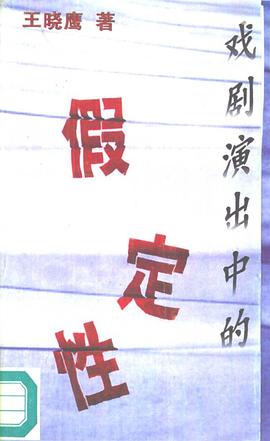 王晓鹰 著
戏剧演出中的
假定性